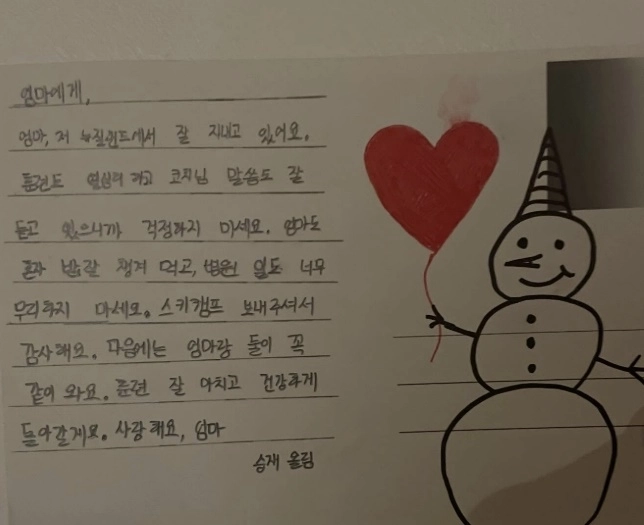 엄마에게,
엄마, 저 뉴질랜드에서 잘 지내고 있어요.
훈련도 열심히 하고 코치님 말씀도 잘
듣고 있으니까 걱정하지 마세요. 엄마도
혼자 밥 잘 챙겨 먹고, 병원 일도 너무
무리하지 마세요. 스키캠프 보내주셔서
감사해요. 다음에는 엄마랑 둘이 꼭
같이 와요. 훈련 잘 마치고 건강하게
돌아갈게요. 사랑해요, 엄마
승재 올림